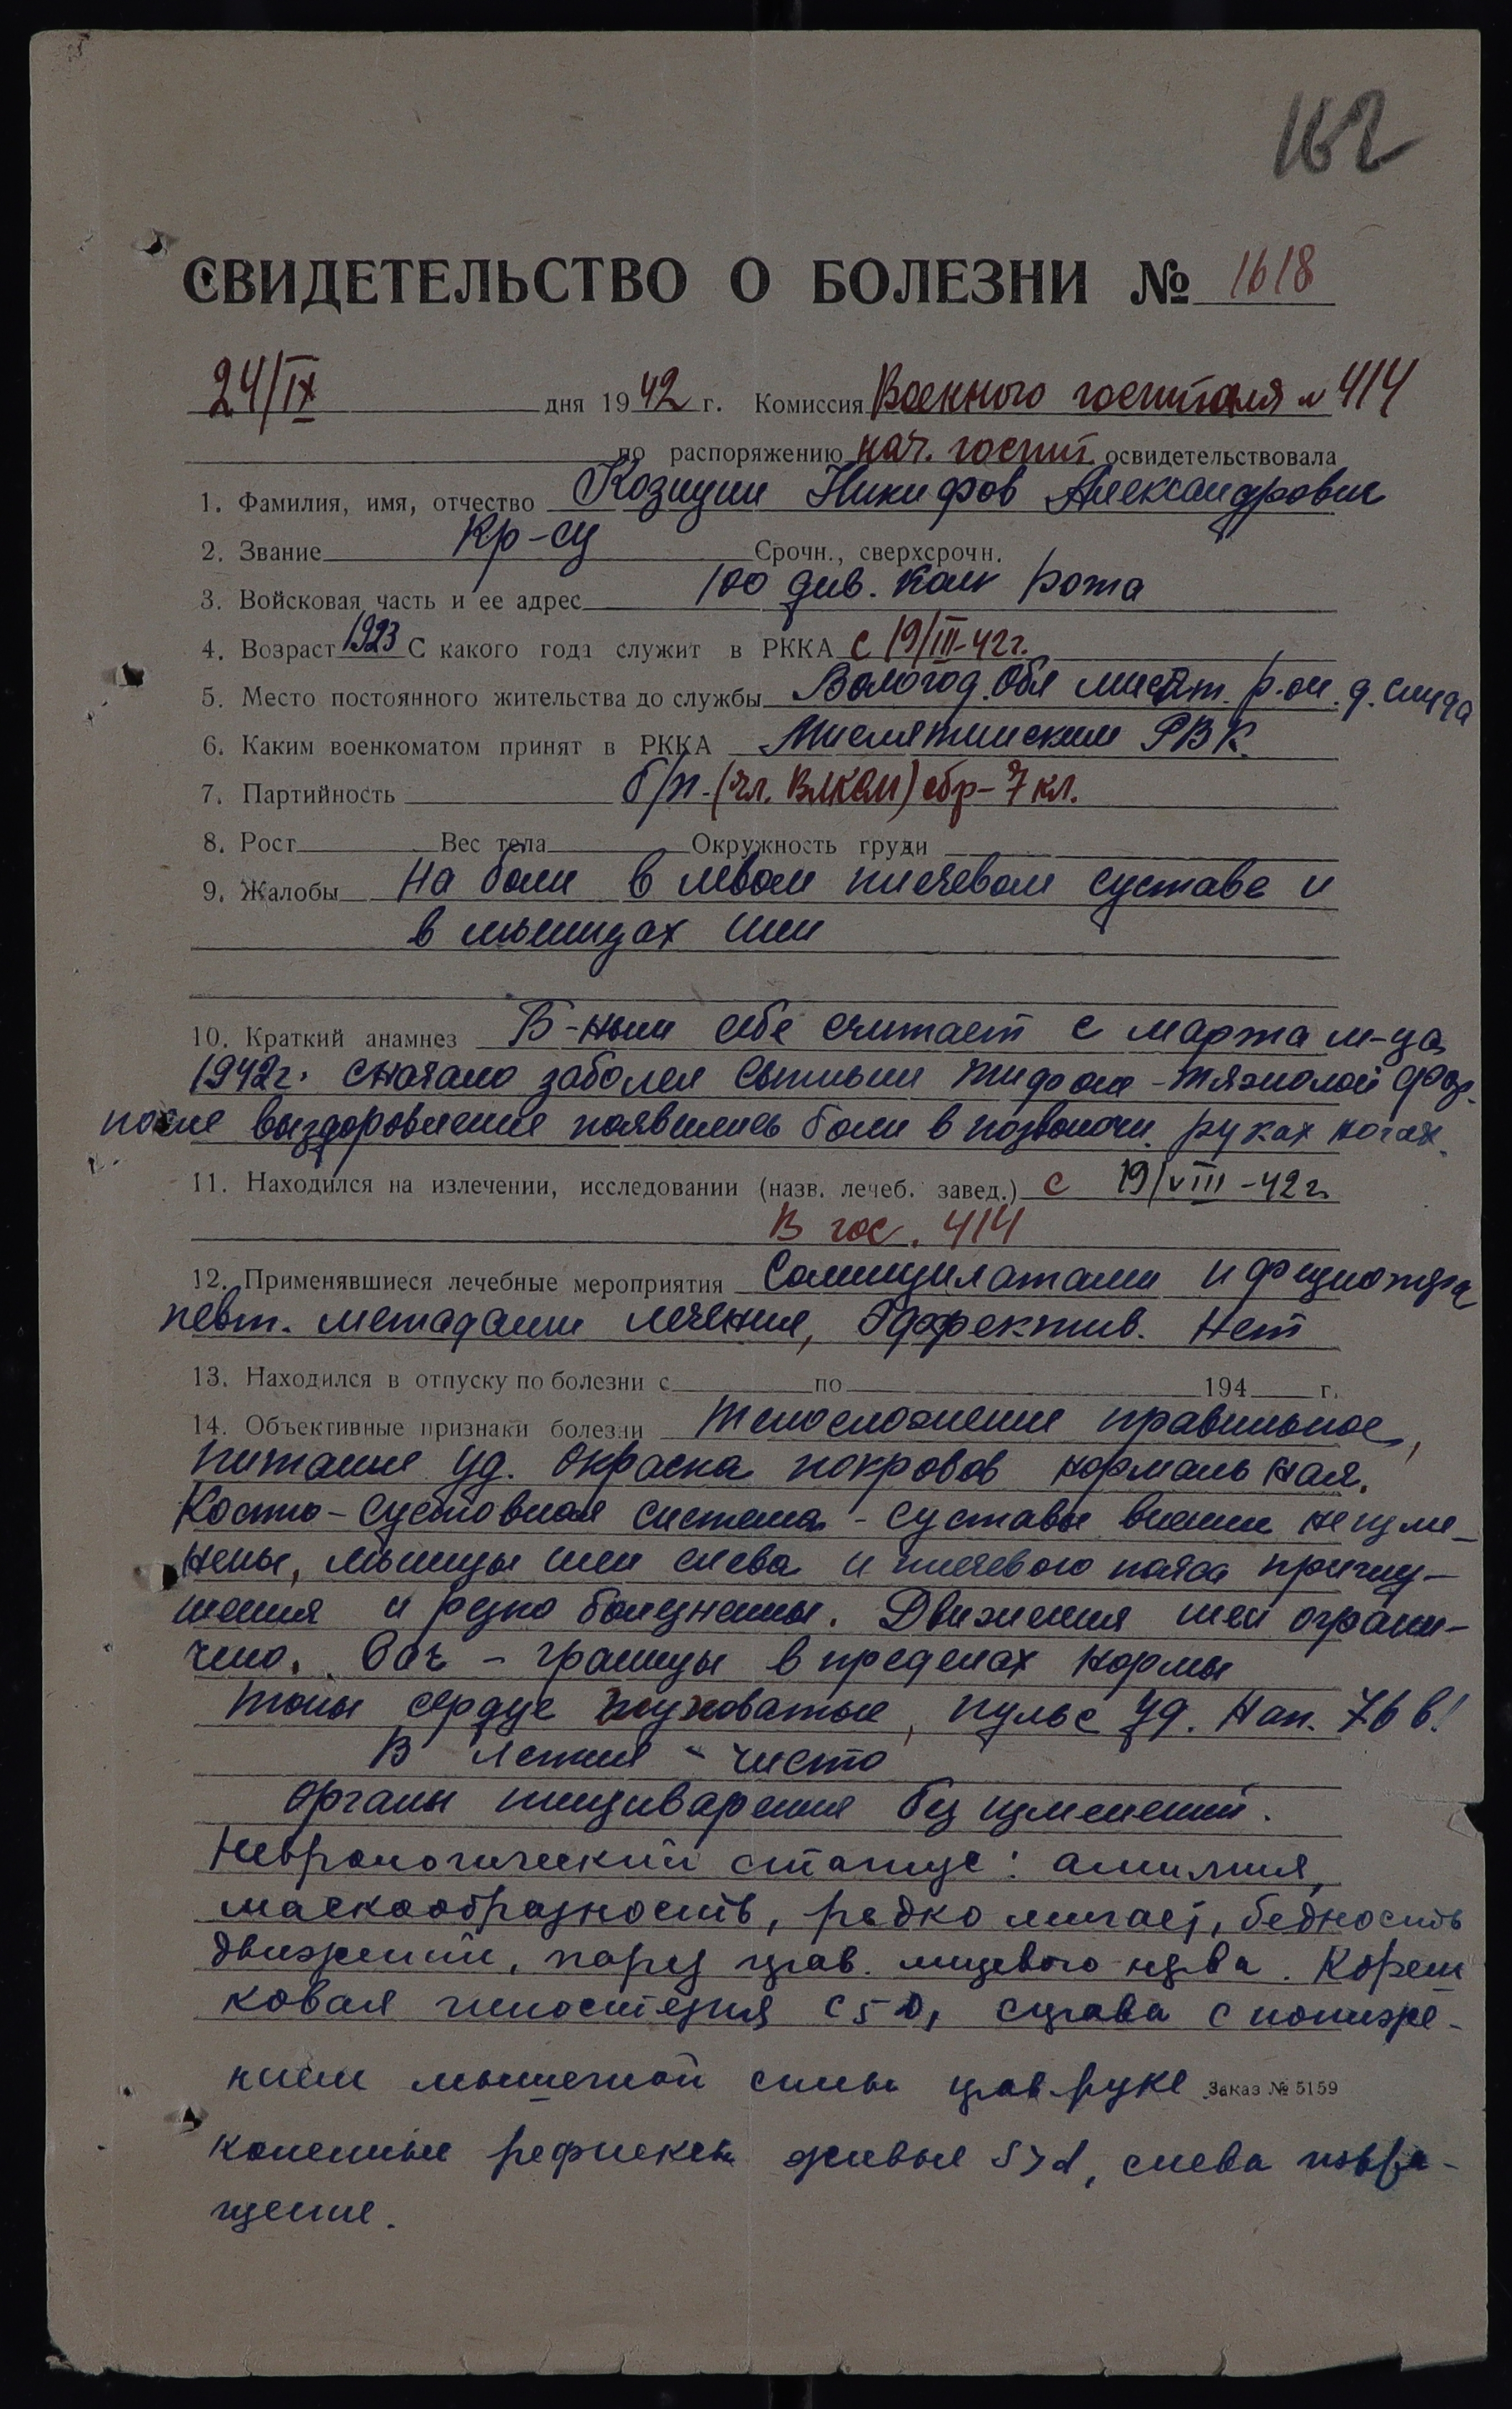 162
СВИДЕТЕЛЬСТВО О БОЛЕЗНИ № 1618
24/IX дня 1942 г. Комиссия Военного госпиталя № 414
по распоряжению нач. госпит. освидетельствовала
1. Фамилия, имя, отчество Козицин Никифов Александрович
2. Звание Кр-ец Срочн., сверхсрочн.
3. Войсковая часть и ее адрес 100 див. рота
4. Возраст 1923 С какого года служит в РККА с 19/III-42г.
5. Место постоянного жительства до службы Вологод. Обл р-он. д.
6. Каким военкоматом принят в РККА РВК.
7. Партийность б/п-(чл. ВЛКСМ) обр- 7 кл.
8. Рост Вес тела Окружность груди
9. Жалобы На боли в левом плечевом суставе и
в мышцах шеи
10. Краткий анамнез Б-ным себе считает с марта м-ца
1942г. сначало заболел сыпным тифом - тяжолой фор.
после выздоровление появились боли в позвоночн. руках ногах.
11. Находился на излечении, исследовании (назв. лечеб. завед.) с 19/VIII-42г.
В гос. 414
12. Применявшиеся лечебные мероприятия Салицилатами и физиотера
певт. методами лечение, Эффектив. Нет
13. Находился в отпуску по болезни с по 194 г.
14. Объективные признаки болезни Телосложение правильное,
питание уд. Окраска покровов нормальная.
Костно-суставная система - суставы внешне не изме-
нены, мышцы шеи слева и плечевого пояса
и резко болезнены. Движения шеи ограни-
чено. - границы в пределах нормы
тоны сердце глуховатые, пульс уд. Нап. 76 в!
В легких - чисто
Органы пищиварения без изменений.
Неврологический статус: амимия,
маскообразность, редко мигает, бедность
движений, парез прав. лицевого нерва. Кореш
ковая гипостезия С5 D, справа с пониже-
нием мышечной силы прав. руке
Заказ № 5159
коленные рефлексы живые S>d, слева извра-
щение.